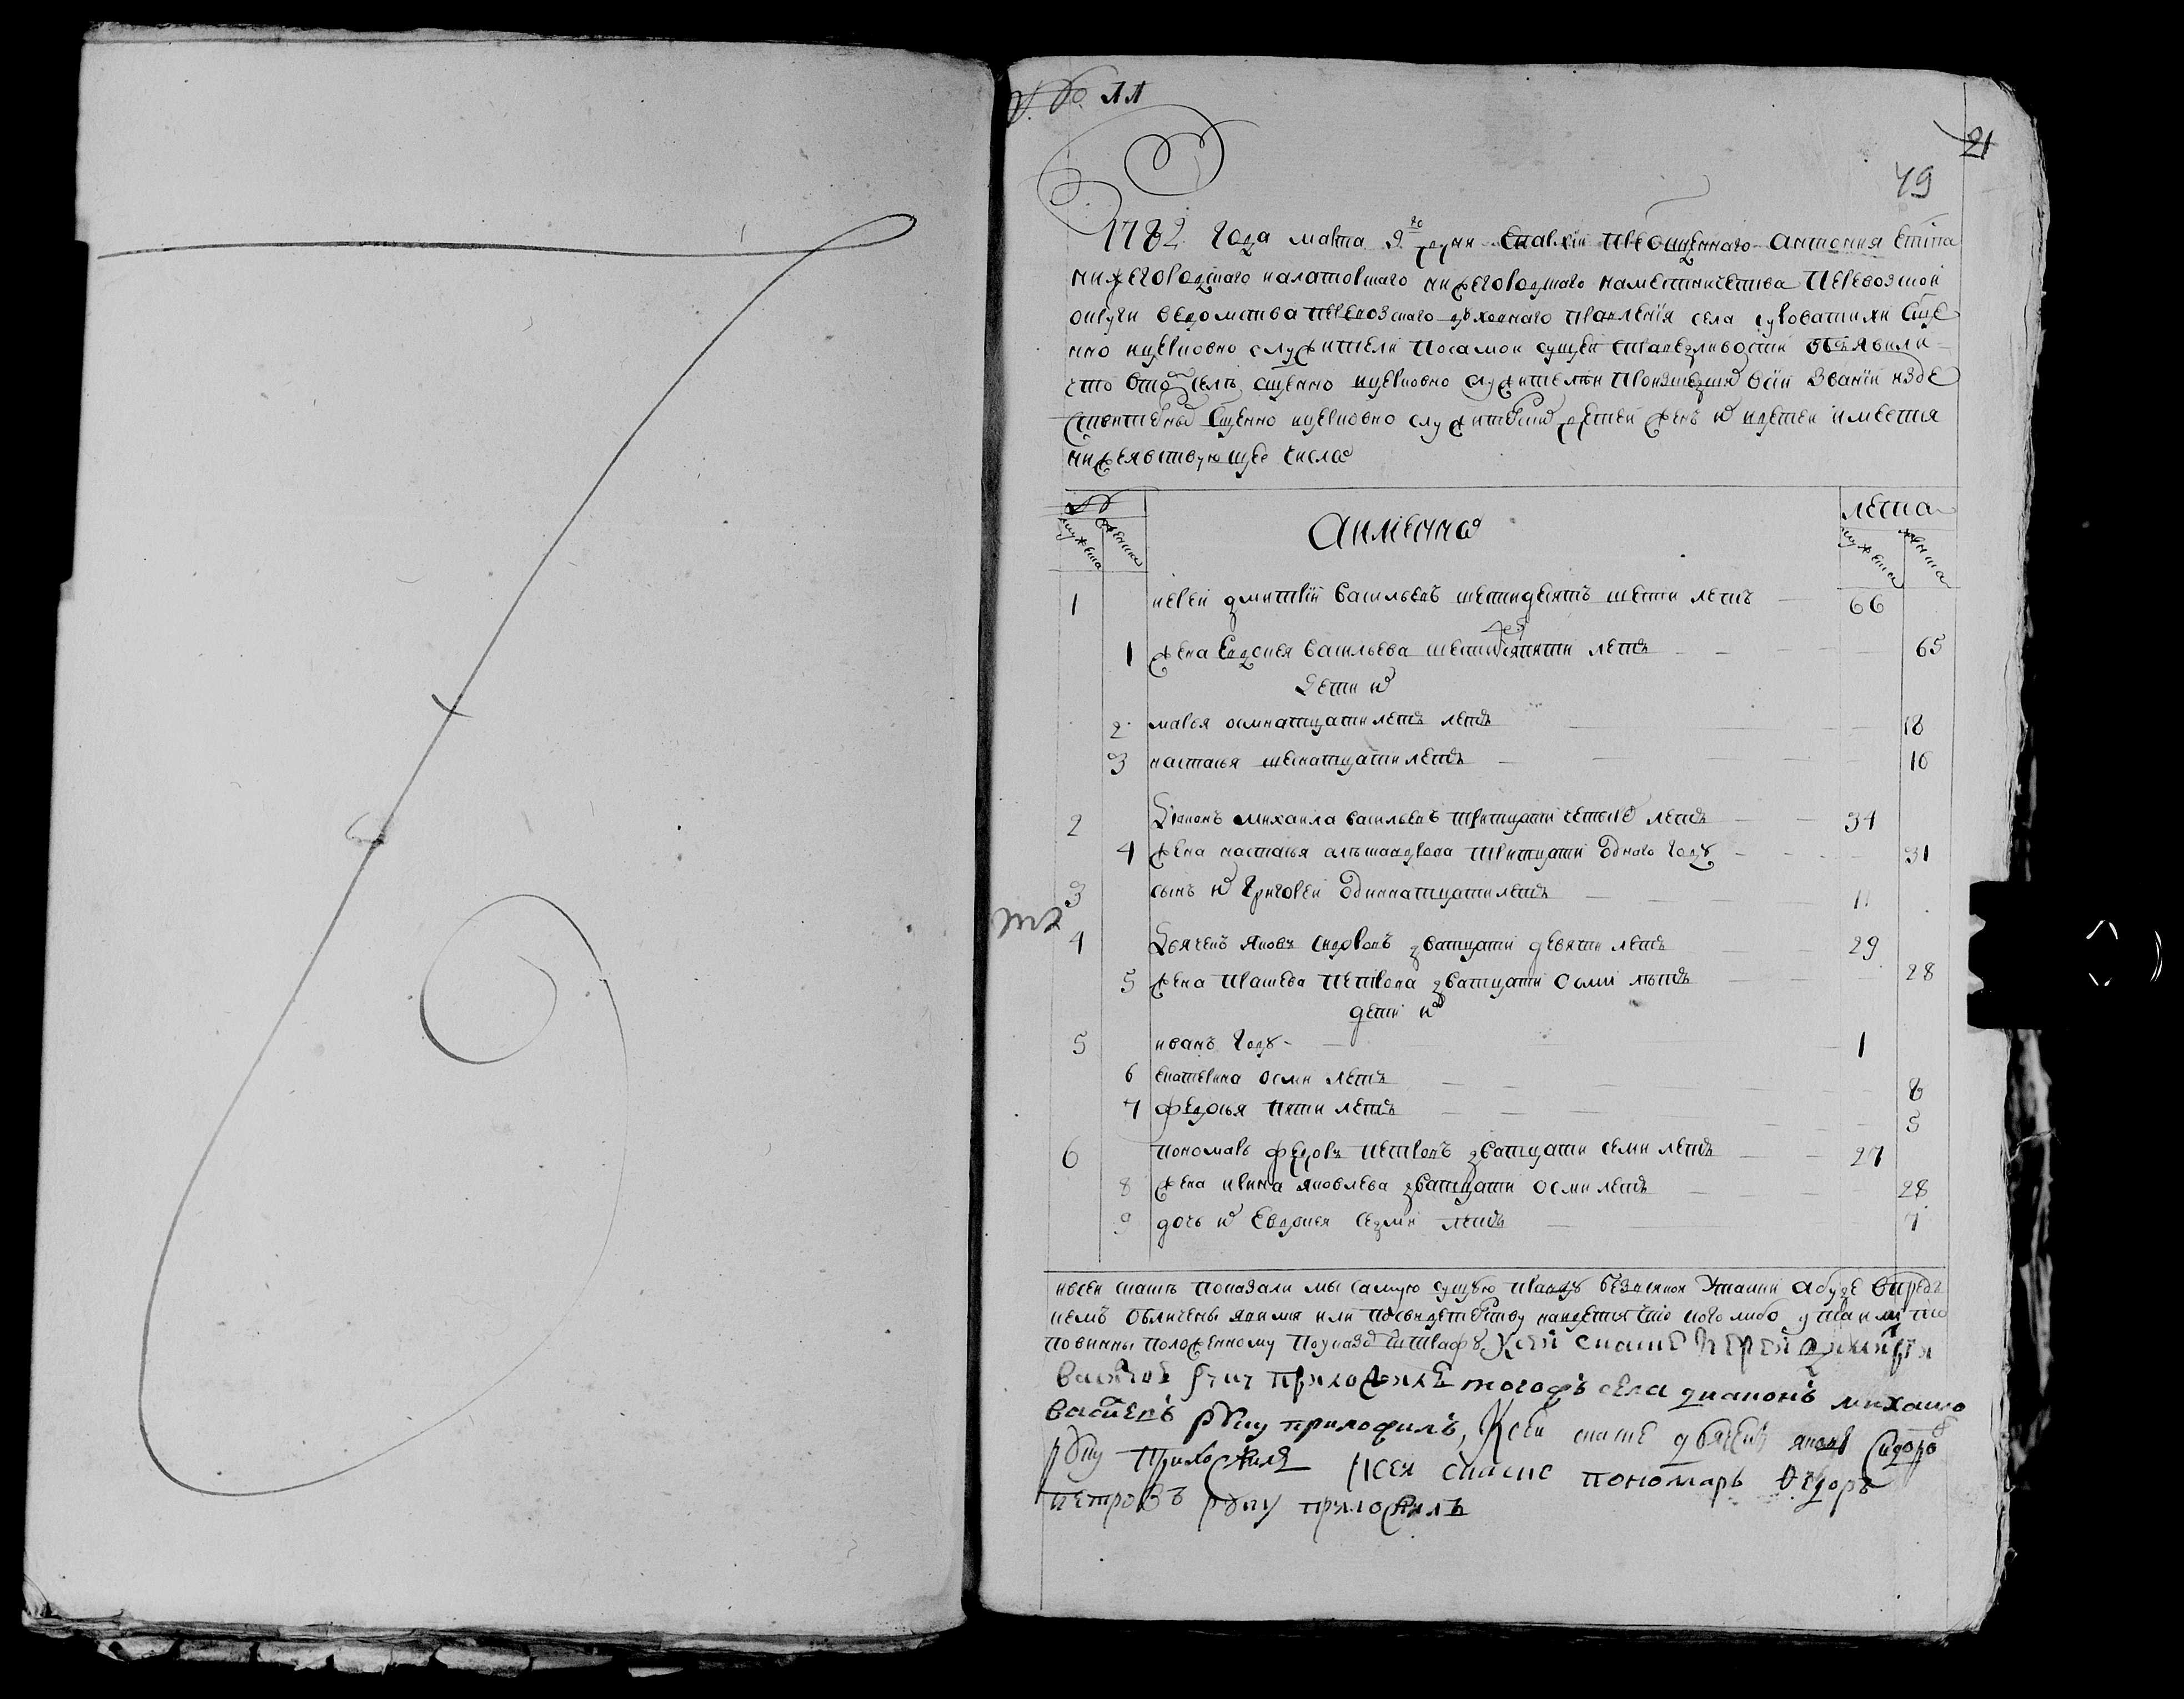 № 11
21
79
1782 года марта 9 го дня Епархии преосвященнаго Антония епископа
нижегородцкаго и алаторскаго нижегородцкаго наместничества Перевозской
округи ведомства перевозскаго духовнаго правления села священно
и церковно служители по самой сущей справедливости объявили
что в томъ селе священно и церковно служителми произшедшихъ в сии звании из де
ствителныхъ священно и церковно служителскихъ детей женъ ихъ и детей имеется
нижеявствующее число
№
мужеска
женска
А имянно
лета
мужеска
женска
1 иерей Дмитрий Васильевъ шестидесятъ шести летъ 66
1 жена Евдокея Васильева шестидесяти пяти летъ 65
Дети ихъ
2 марья осмнатцати летъ летъ 18
3 настасья шеснатцати летъ 16
2 Диаконъ михаила васильевъ тритцати четырехъ летъ 34
4 жена настасья александрова тритцати одного году 31
3 сынъ ихъ григорей одиннатцати летъ 11
4 Дьячекъ яковъ сидоровъ дватцати девяти летъ 29
5 жена прасковья петрова дватцати осми летъ 28
дети ихъ
5 иванъ году 1
6 екатерина осми летъ 8
7 федосья пяти летъ 5
6 пономарь федоръ петровъ дватцати семи летъ 27
8 жена ирина яковлева дватцати осми летъ 28
9 дочь ихъ Евдокея седми летъ 7
к сей скаске показали мы самую сущую правду без всякой утайки а буде впредь
в чемъ обличены явимся или по свидетельству найдется что кого либо утаили то
повинны положенному по указамъ штрафу. К сей скаске иерей димитрий
васильевъ руку приложилъ тогожъ села диаконъ михаило
васильевъ руку приложилъ, К сей скаске дьячекъ яковъ сидоровъ
руку приложилъ К сей скаске пономарь Федоръ
петровъ руку приложилъ